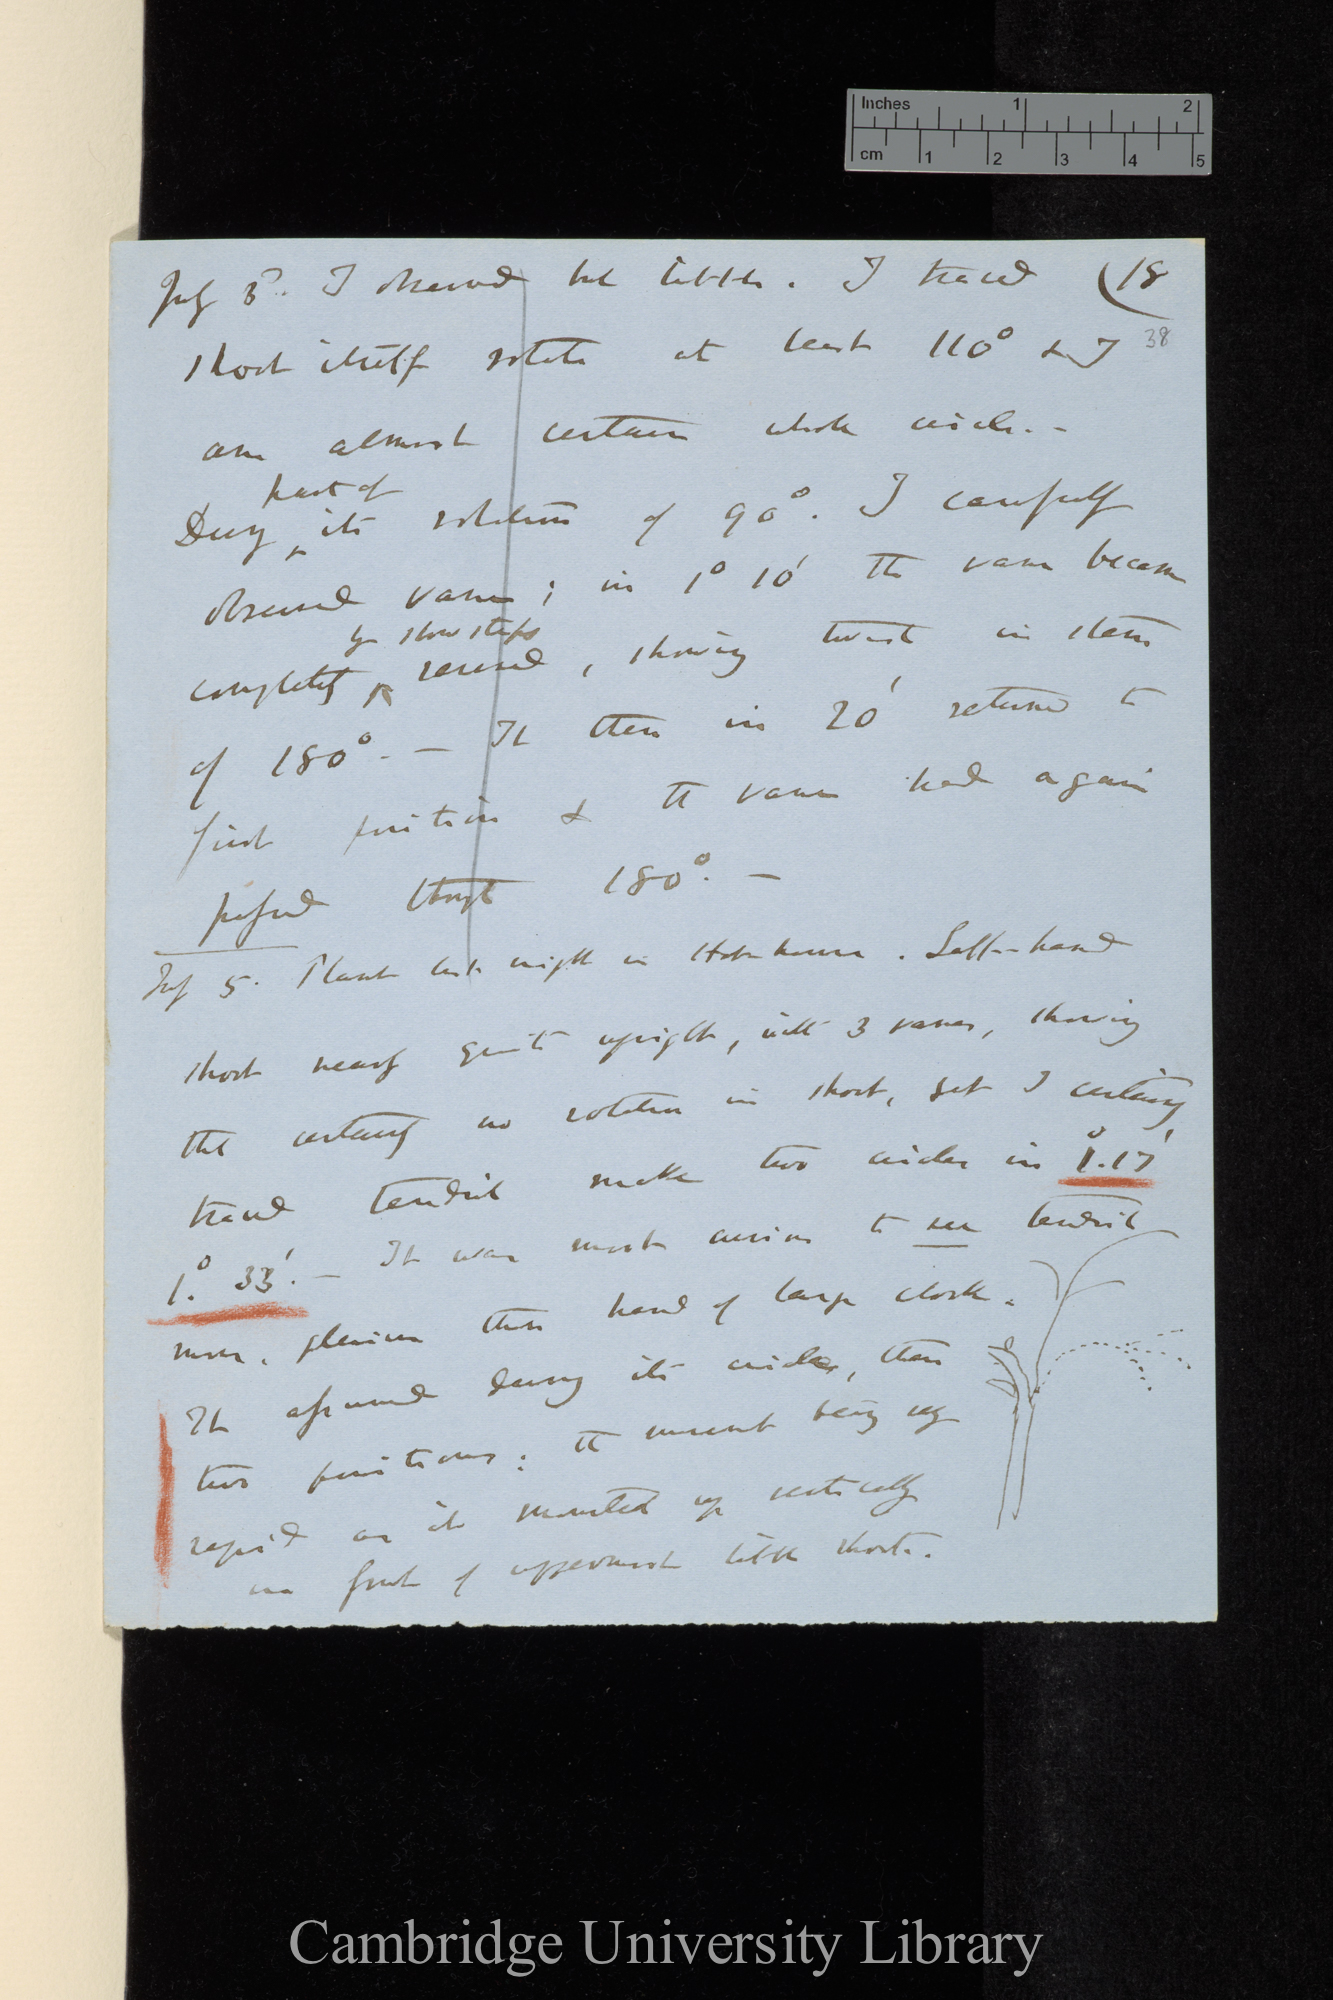 Inches 1 2
cm 1 2 3 4 5
July 3d. I observed but little. I traced (18
38
shoot itself rotate at least 110° & I
am almost certain whole circle. —
part of
During ^ its rotation of 90°. I carefully
observed vane; in 1° 10' the vane became
by slow steps
completely ^ reversed, showing twist in stem
of 180°. — It then in 20' returned to
first position & the vane had again
passed through 180°. —
July 5. Plant last night in Hot-house. Left-hand
shoot nearly quite upright, with 3 vanes, showing
that certainly no rotation in shoot, yet I certainly
traced tendril make two circles in 1°. 17'
1.° 33'. — It was most curious to see tendril
move, plainer than hand of large clock.
It assumed during its circles, these
two positions: the movement being very
rapid as it mounted up vertically
in front of uppermost little shoots.
Cambridge University Library